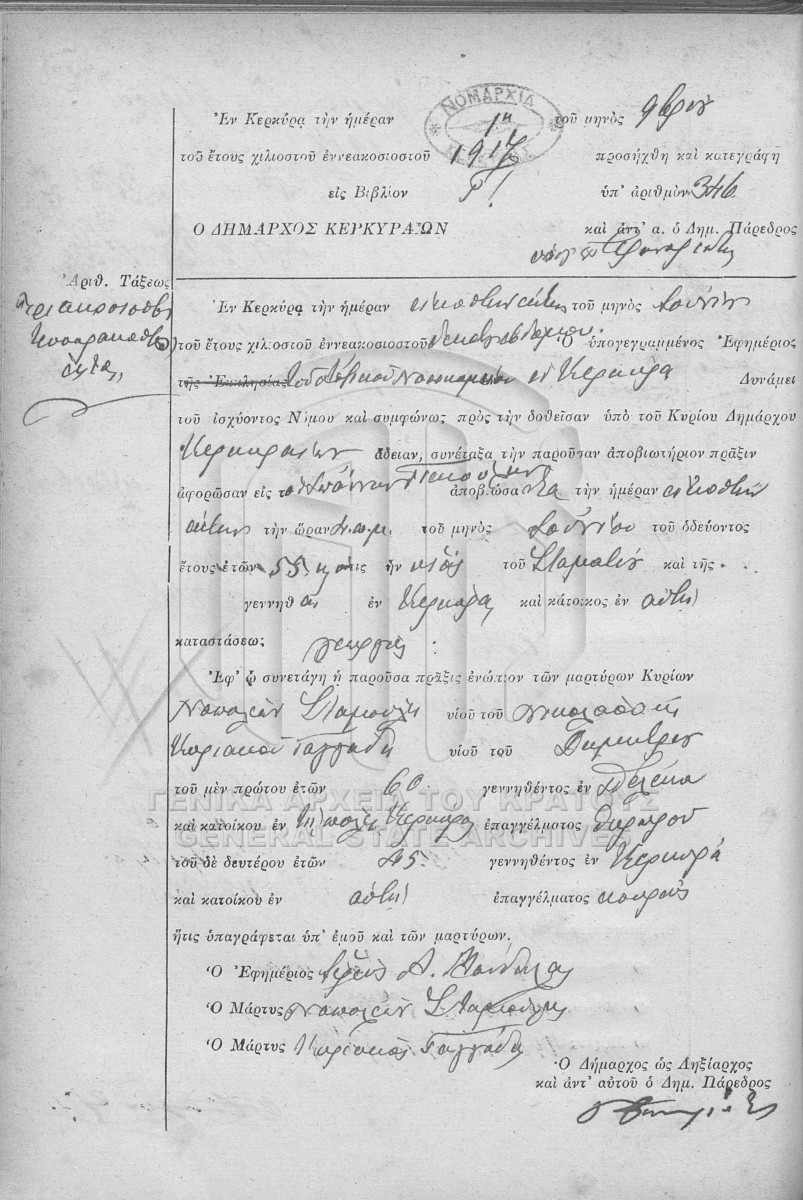 ΝΟΜΑΡΧΙΑ
Ἐν Κερκύρᾳ τὴν ἡμέραν 1η τοῦ μηνὸς 9βρίου
τοῦ ἔτους χιλιοστοῦ ἐννεακοσιοστοῦ 1917 προσήχθη καὶ κατεγράφη
εἰς Βιβλίον Γ! ὑπ' ἀριθμὸν 346
Ο ΔΗΜΑΡΧΟΣ ΚΕΡΚΥΡΑΙΩΝ καὶ ἀντ' α. ὁ Δημ. Πάρεδρος
Ἀριθ. Τάξεως
τριακοσιοστὴ
τεσσαρακοστὴ
ἕκτη
Ἐν Κερκύρᾳ τὴν ἡμέραν εἰκοστὴν τοῦ μηνὸς Ἰουνίου
τοῦ ἔτους χιλιοστοῦ ἐννεακοσιοστοῦ δεκάτου ἑβδόμου ὁ ὑπογεγραμμένος Ἐφημέριος
τῆς Ἐκκλησίας τοῦ Νοσοκομείου ἐν Κερκύρᾳ Δυνάμει
τοῦ ἰσχύοντος Νόμου καὶ συμφώνως πρὸς τὴν δοθεῖσαν ὑπὸ τοῦ Κυρίου Δημάρχου
Κερκυραίων ἄδειαν, συνέταξα τὴν παροῦσαν ἀποβιωτήριον πρᾶξιν
ἀφορῶσαν εἰς τὸν ἀποβιώσαντα τὴν ἡμέραν εἰκοστὴν
τὴν ὥραν 4 π.μ. τοῦ μηνὸς Ἰουνίου τοῦ ὁδεύοντος
ἔτους ἐτῶν 55 ὅστις ἦν υἱὸς τοῦ Σταματίου καὶ τῆς
γεννηθεὶς ἐν Κερκύρᾳ καὶ κάτοικος ἐν αὐτῇ
καταστάσεως γεωργὸς
Ἐφ' ᾧ συνετάγη ἡ παροῦσα πρᾶξις ἐνώπιον τῶν μαρτύρων Κυρίων
Ναπολέων Σταμούλη υἱοῦ τοῦ
Κυριακοῦ Γαγγάδη υἱοῦ τοῦ Δημητρίου
τοῦ μὲν πρώτου ἐτῶν 60 γεννηθέντος ἐν
καὶ κατοίκου ἐν πόλει Κερκύρας ἐπαγγέλματος θυρωροῦ
τοῦ δὲ δευτέρου ἐτῶν 45 γεννηθέντος ἐν Κερκύρᾳ
καὶ κατοίκου ἐν αὐτῇ ἐπαγγέλματος
ἥτις ὑπαγράφεται ὑπ' ἐμοῦ καὶ τῶν μαρτύρων.
Ὁ Ἐφημέριος Ἱερεὺς Α.
Ὁ Μάρτυς Ναπολέων Σταμούλης
Ὁ Μάρτυς Κυριακὸς Γαγγάδης
Ὁ Δήμαρχος ὡς Ληξίαρχος
καὶ ἀντ' αὐτοῦ ὁ Δημ. Πάρεδρος
ΓΕΝΙΚΑ ΑΡΧΕΙΑ ΤΟΥ ΚΡΑΤΟΥΣ
GENERAL STATE ARCHIVES